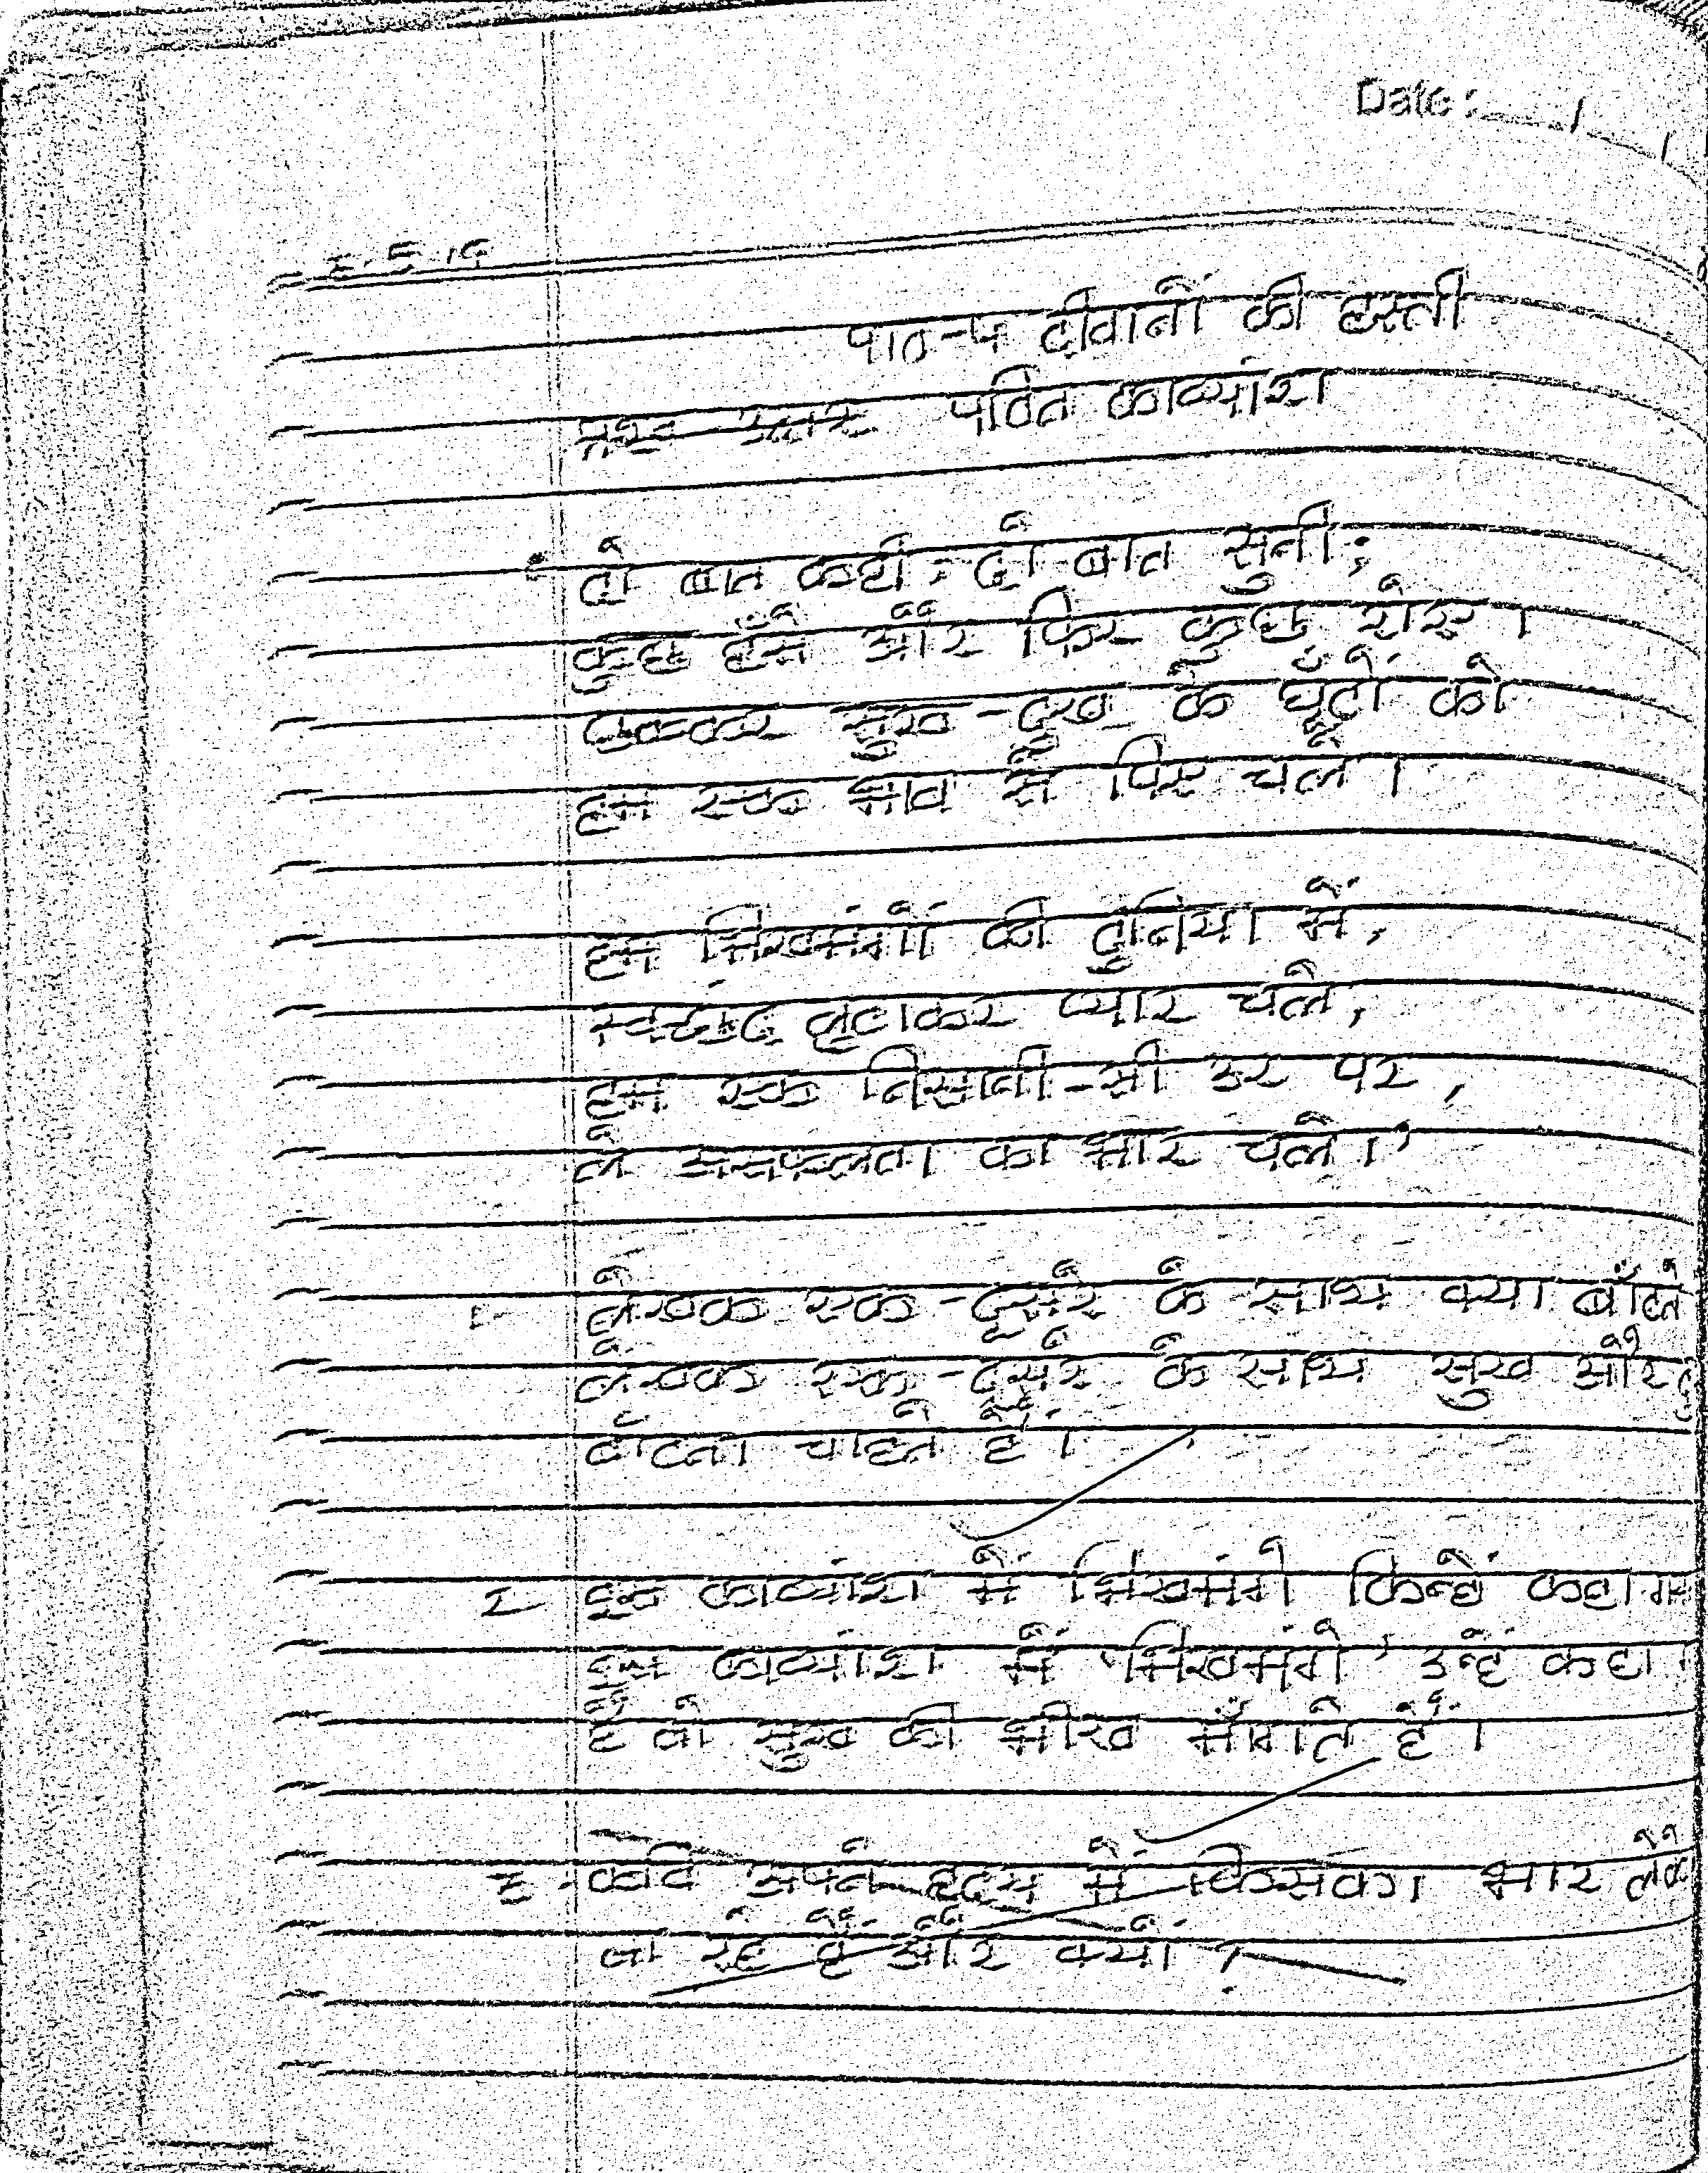 Date :
पाठ-४ दीवानों की हस्ती
प्रश्न उत्तर पठित काव्यांश
दो बात कही, दो बात सुनी;
कुछ हँसे और फिर कुछ रोए।
छककर सुख-दुख के घूँटों को
हम एक भाव से पिए चले।
हम भिखमंगों की दुनिया में,
स्वच्छंद लुटाकर प्यार चले,
हम एक निसानी-सी उर पर,
ले असफलता का भार चले।'
1- लेखक एक-दूसरे के साथ क्या बाँटते
लेखक एक-दूसरे के साथ सुख और
बाँटना चाहते हैं।
2 इस काव्यांश में भिखमंगे किन्हें कहा
इस काव्यांश में 'भिखमंगे' उन्हें कहा
हैं जो सुख की भीख माँगते हैं।
3- कवि अपने हृदय में किसका भार लेके
जा रहे हैं और क्यों ?